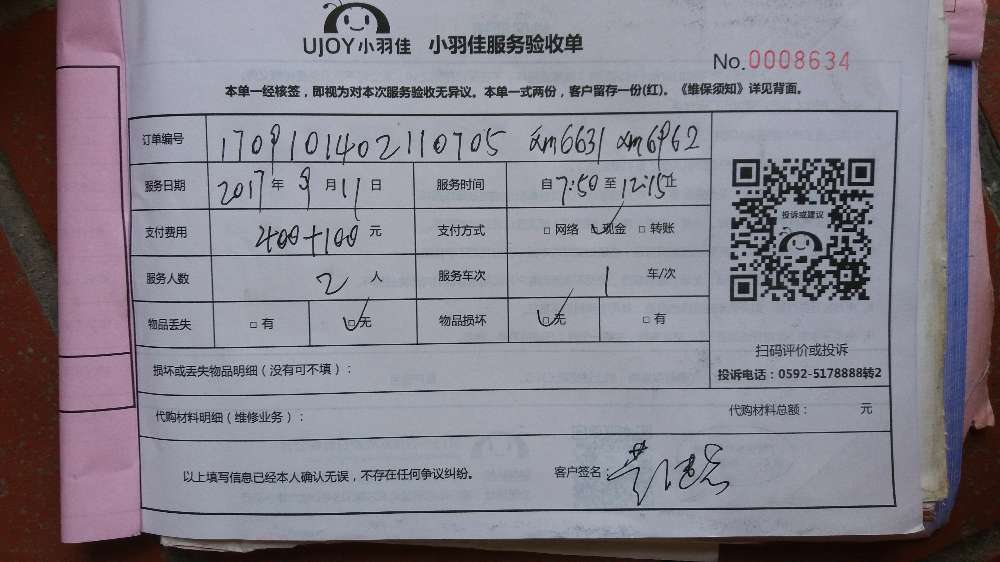 UJOY小羽佳 小羽佳服务验收单
No.0008634
本单一经核签，即视为对本次服务验收无异议。本单一式两份，客户留存一份(红)。《维保须知》详见背面。
订单编号 170910140211070​5 xm6631 xm6962
服务日期 2017年9月11日 服务时间 自7:50至12:15止
支付费用 400+100元 支付方式 □网络 □现金 □转账
服务人数 2人 服务车次 1车/次
物品丢失 □有 □无 物品损坏 □无 □有
投诉或建议
扫码评价或投诉
投诉电话：0592-5178888转2
损坏或丢失物品明细（没有可不填）：
代购材料明细（维修业务）： 代购材料总额： 元
以上填写信息已经本人确认无误，不存在任何争议纠纷。 客户签名：